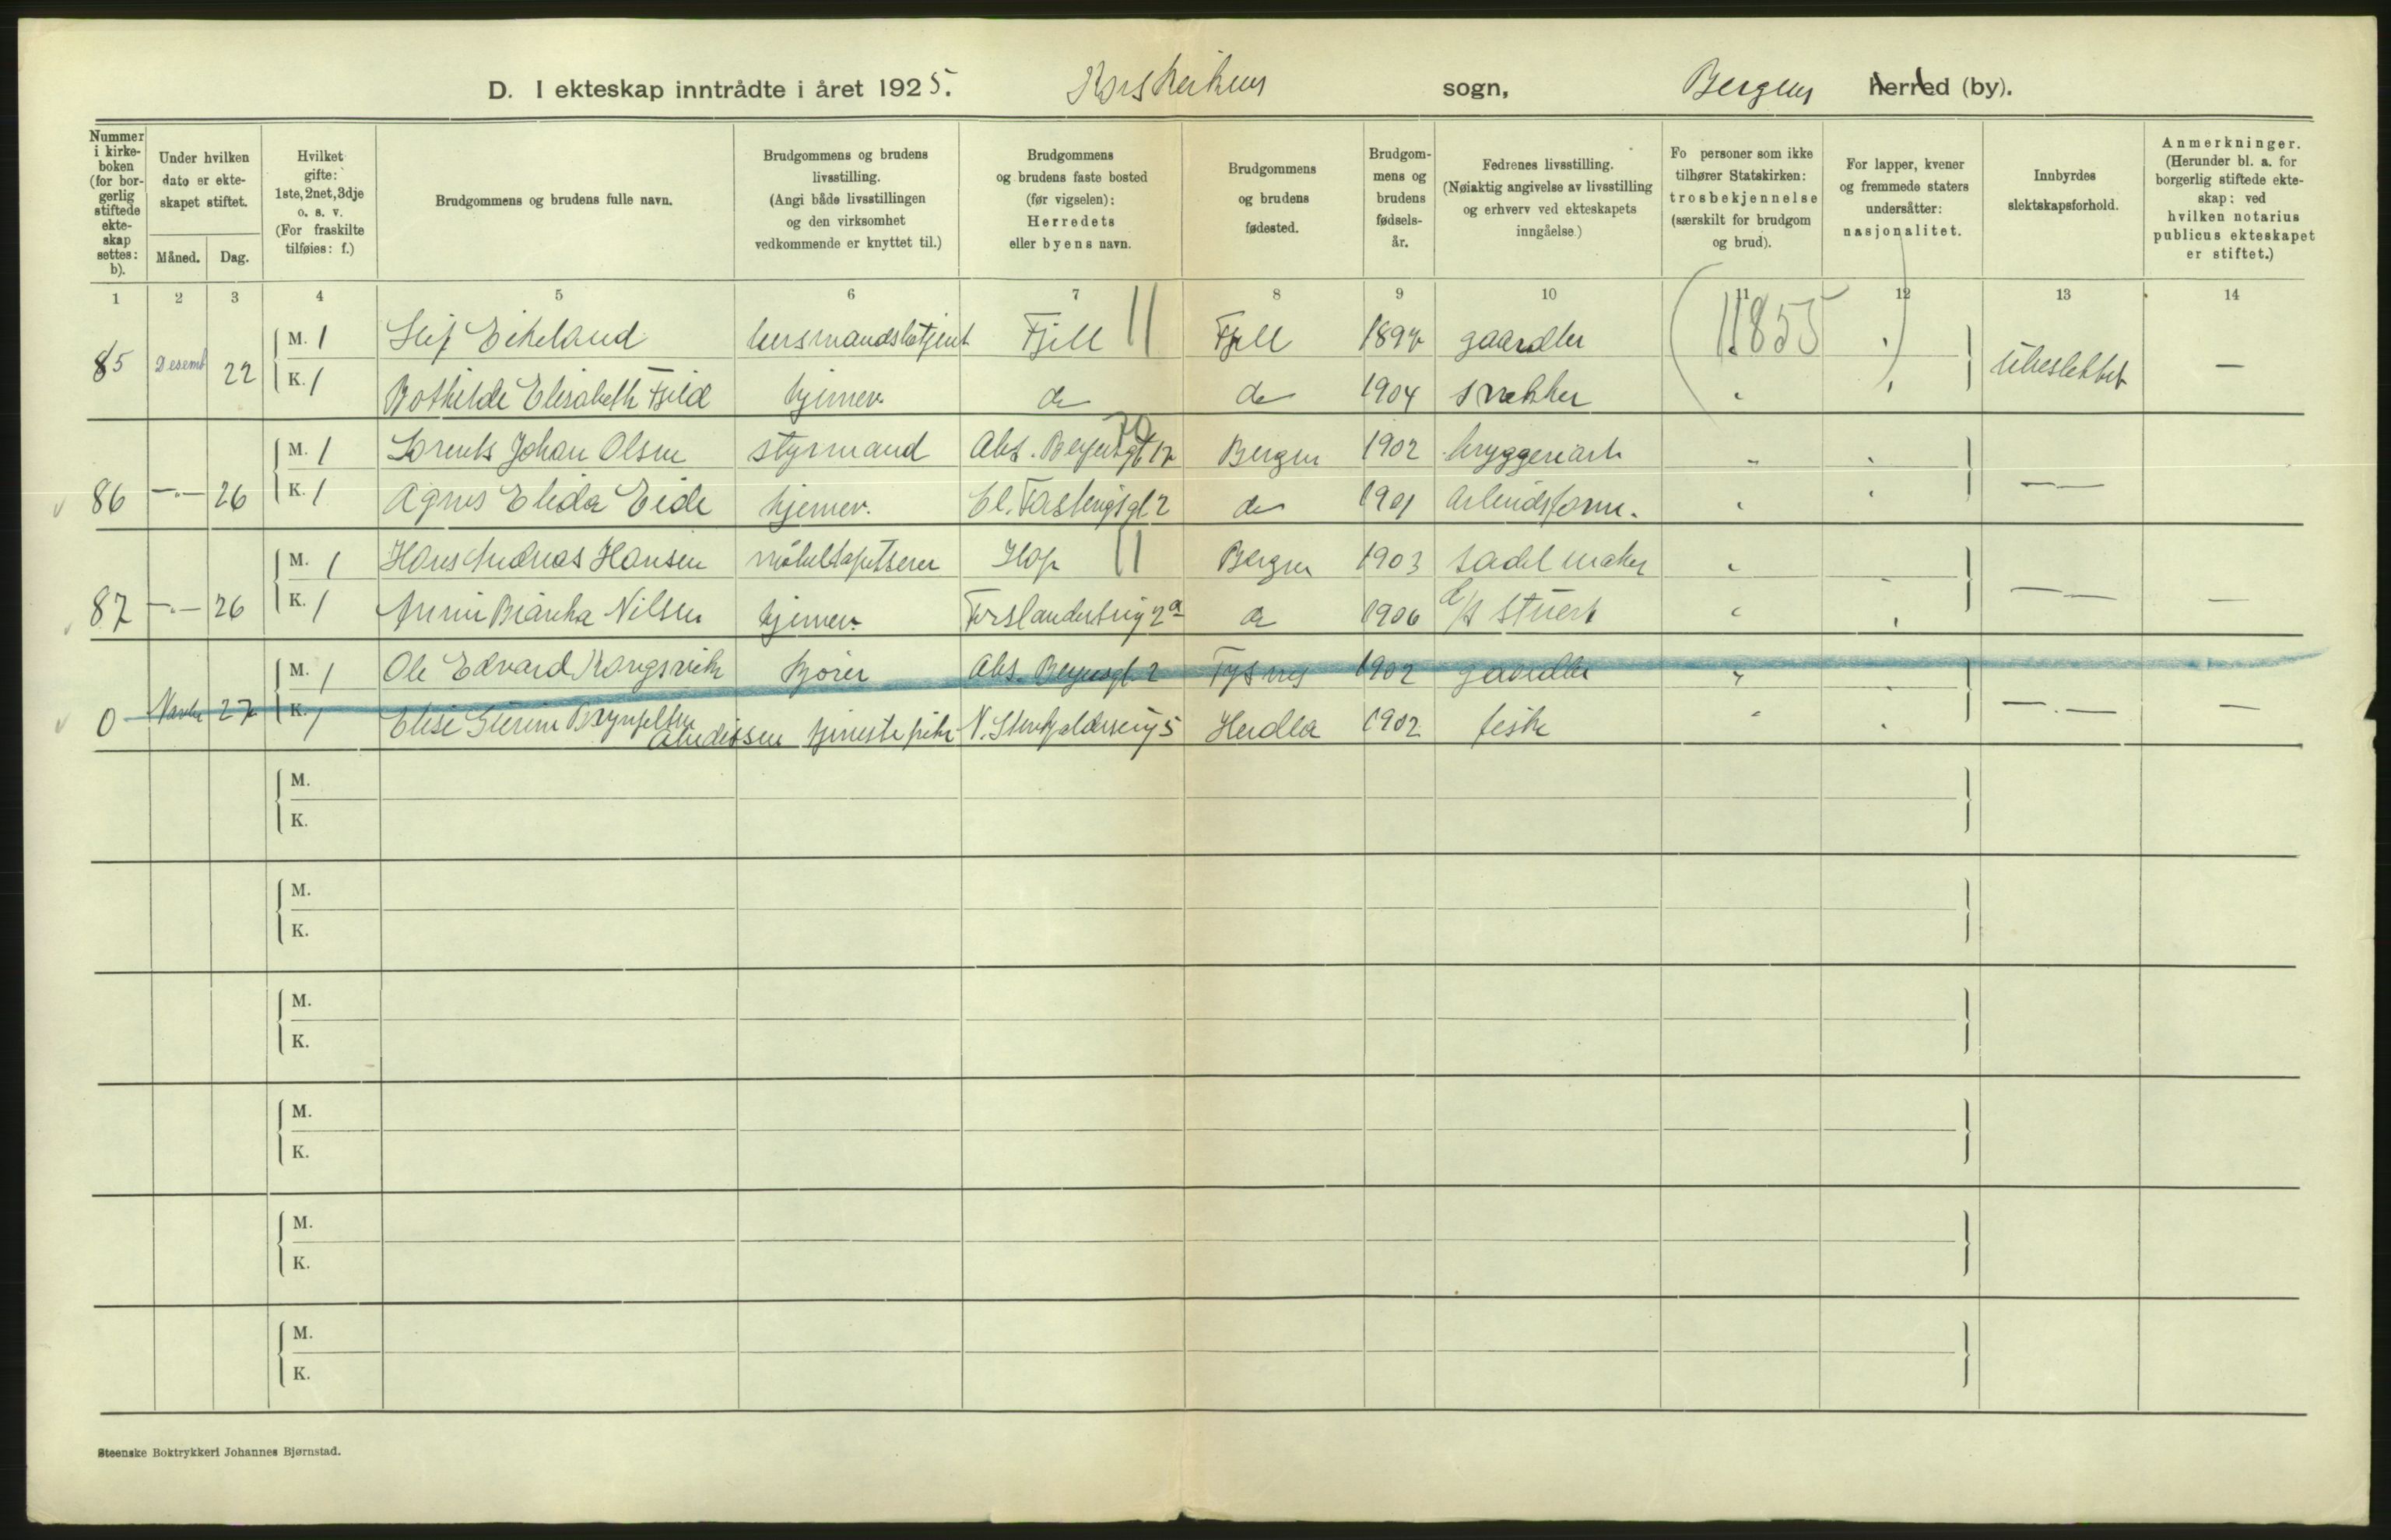 D. I ekteskap inntrådte i året 1925. Korskirkens sogn, Bergens herred (by).
Nummer i kirkeboken (for borgerlig stiftede ekteskap settes: b).
Under hvilken dato er ekteskapet stiftet.
Måned. Dag.
Hvilket gifte: 1ste, 2net, 3dje o. s. v. (For fraskilte tilføies: f.)
Brudgommens og brudens fulle navn.
Brudgommens og brudens livsstilling. (Angi både livsstillingen og den virksomhet vedkommende er knyttet til.)
Brudgommens og brudens faste bosted (før vigselen): Herredets eller byens navn.
Brudgommens og brudens fødested.
Brudgommens og brudens fødselsår.
Fedrenes livsstilling. (Nøiaktig angivelse av livsstilling og erhverv ved ekteskapets inngåelse.)
Fo personer som ikke tilhører Statskirken: trosbekjennelse (særskilt for brudgom og brud).
For lapper, kvener og fremmede staters undersåtter: nasjonalitet.
Innbyrdes slektskapsforhold.
Anmerkninger. (Herunder bl. a. for borgerlig stiftede ekteskap: ved hvilken notarius publicus ekteskapet er stiftet.)
1 2 3 4 5 6 7 8 9 10 11 12 13 14
M. 1 Leif Eikeland lensmandsbetjent Fjell || Fjell 1897 gaardbr (11855 )
85 Desemb 22 K. 1 Bothilde Elisabeth Fjeld hjemmev. do do 1904 snekker " " ubeslektet —
M. 1 Lorents Johan Olsen styrmand Abs. Beyersgt 17 Bergen 1902 bryggeriarb
86 —"— 26 K. 1 Agnes Elida Eide hjemmev. 2 do 1901 Arbeidsform. —"—
M. 1 Hans Andreas Hansen møbeltapetserer Hop || Bergen 1903 sadelmaker
87 —"— 26 K. 1 Annie Bianka Nilsen hjemmev. 2a do 1906 d/s stuert —"— —
M. 1 Ole Edvard Kongsvik kjører Abs. Beyersgt. 2 Tysnes 1902 gaardbr
0 Novbr 27 K. 1 Elise Gurine Brynjelsen Andersen tjenestepike 5 Herdla 1902 fisker —"— —
M.
K.
M.
K.
M.
K.
M.
K.
M.
K.
M.
K.
Steenske Boktrykkeri Johannes Bjørnstad.